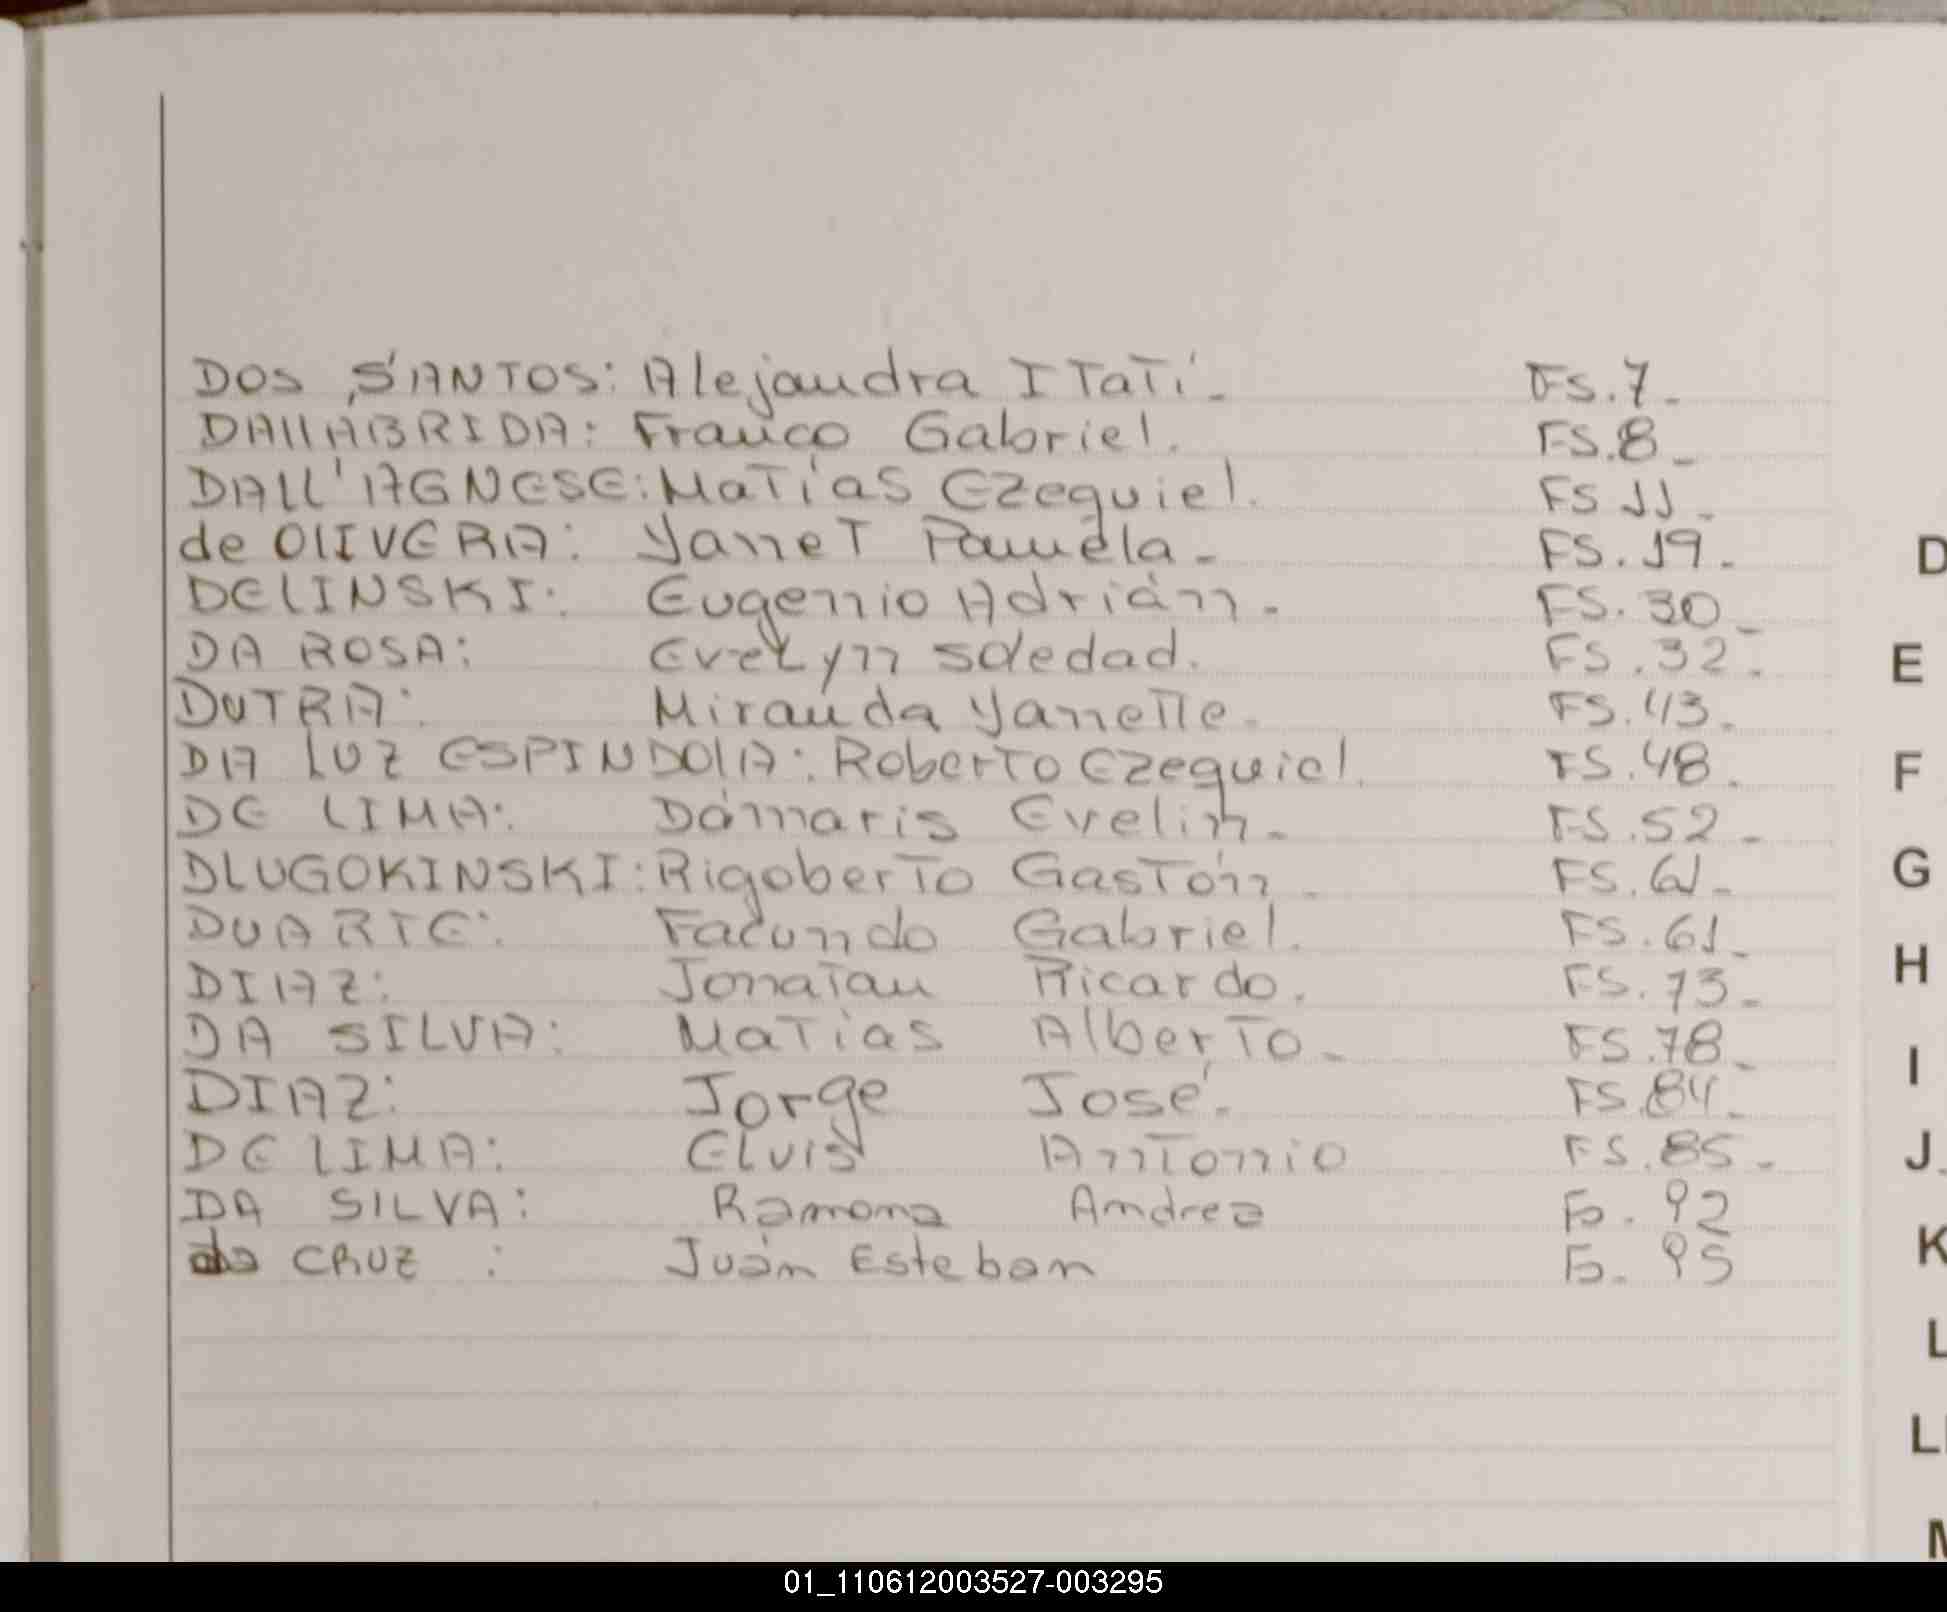 DOS SANTOS: Alejandra ITaTí. FS.7.
DAllABRIDA: Franco Gabriel. FS.8.
DAll'AGNESE: MaTías Ezequiel. FS 11.
de OlIVERA: YanneT Pamela. FS.19.
DElINSKI: Eugennio Adrián. FS.30.
DA ROSA: EveLyn Soledad. FS.32.
DUTRA: Miranda Yannelle. FS.43.
DA lUZ ESPINDOlA: RoberTo Ezequiel. FS.48.
DE LIMA: Dámaris Evelin. FS.52.
DLUGOKINSKI: RigoberTo GasTón. FS.61.
DUARTE: Facundo Gabriel. FS.61.
DIAZ: JonaTan Ricardo. FS.73.
DA SILVA: MaTias AlberTo. FS.78.
DIAZ: Jorge José. FS.84.
DE lIMA: ELvis AnTonio FS.85.
DA SILVA: Ramona Andrea Fo. 92
da CRUZ : Juán Esteban Fo. 95
D
E
F
G
H
I
J
K
L
LL
M
01_110612003527-003295